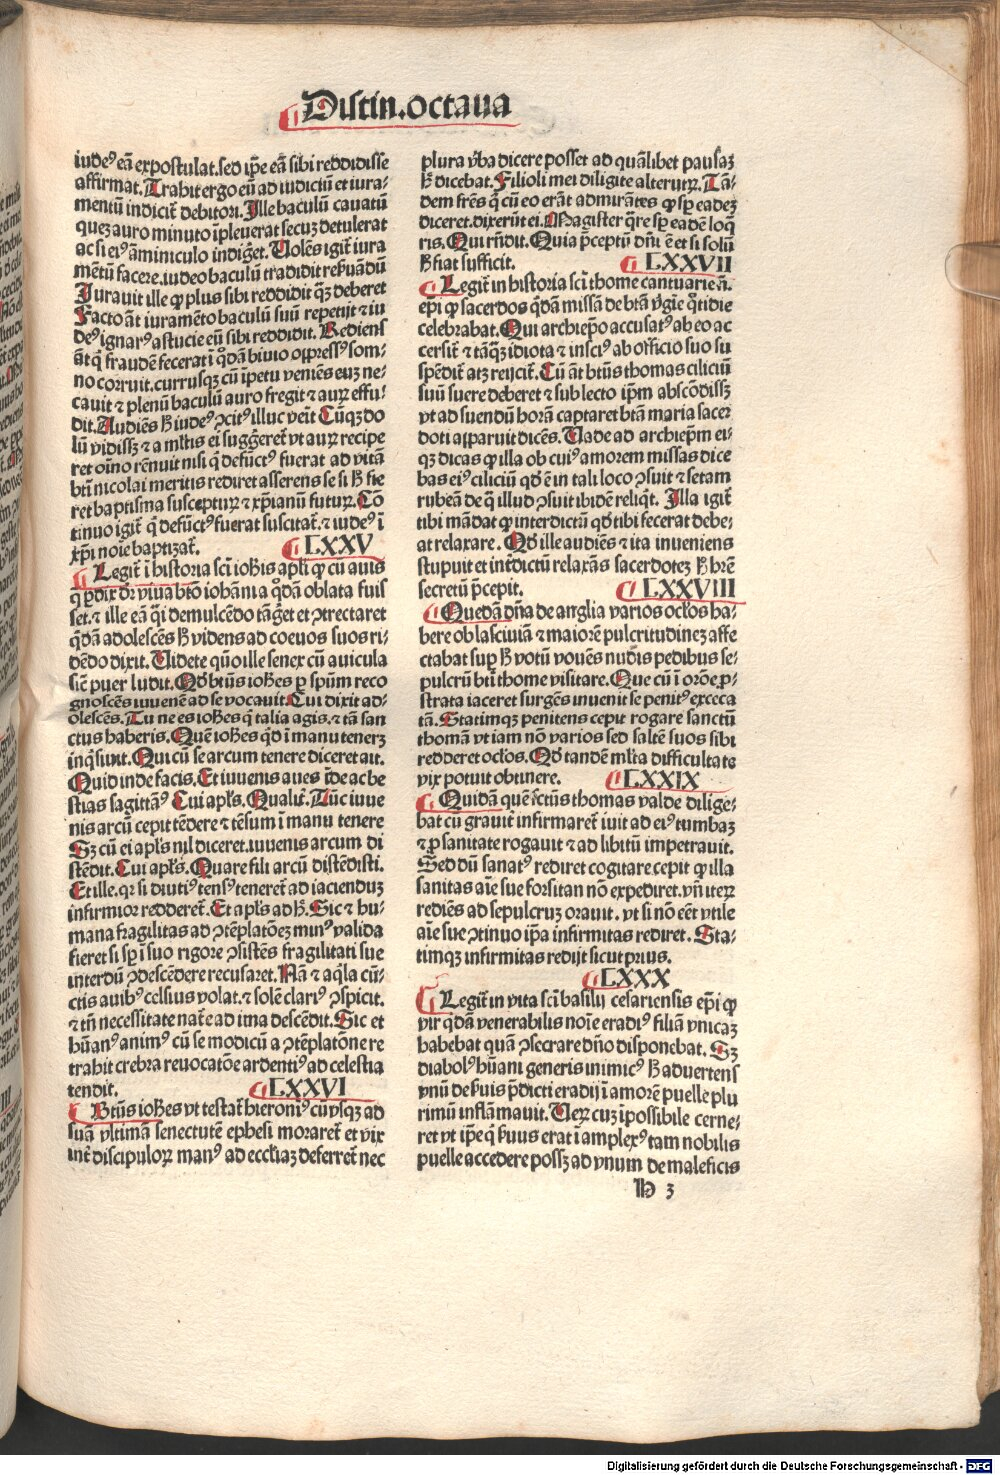 Distin.octaua
iudeꝰ eã expostulat.sed ip̃e eã sibi reddidisse
affirmat.Trahit ergo eũ ad iudiciũ et iura⸗
mentũ indicit̃ debitori.Ille baculũ cauatũ
quez auro minuto ĩpleuerat secuz detulerat
ac si eiꝰ aminiculo indiget̃.Uolẽs igit̃ iura
mẽtũ facere.iudeo baculũ tradidit reẜuãdũ
Jurauit ille ꝙ plus sibi reddidit qȝ̃ deberet
Facto ãt iuramẽto baculũ suũ repetijt ⁊ iu
deꝰ ignarꝰ astucie eũ sibi reddidit.Rediens
ãt q̃ fraudẽ fecerat ĩ q̃dã biuio op̃ressꝰ som⸗
no corruit.currusqȝ cũ ĩpetu veniẽs euȝ ne⸗
cauit ⁊ plenũ baculũ auro fregit ⁊ auꝝ effu⸗
dit.Audiẽs ꝧ iudeꝰ ꝯcitꝰ illuc veĩt Cũqȝ do
lũ vidissȝ ⁊ a ml̃tis ei sugg̃eret̃ vt auꝝ recipe
ret oĩno rẽnuit nisi q̃ defũctꝰ fuerat ad vitã
bt̃i nicolai meritis rediret asserens se si ꝧ fie
ret baptisma susceptuꝝ ⁊ xp̃ianũ futuꝝ.Cõ
tinuo igit̃ q̃ defũctꝰ fuerat suscitat̃.⁊ iudeꝰ ĩ
xp̃i noĩe baptizat̃. LXXV
Legit̃ ĩ historia sc̃i ioh̃is apl̃i ꝙ cũ auis
q̃ ꝑdix dr̃ viua bt̃o ioh̃ani a q̃dã oblata fuis
set.⁊ ille eã q̃si demulcẽdo tãg̃et et ꝯtrectaret
q̃dã adolescẽs ꝧ videns ad coeuos suos ri⸗
dẽdo dixit.Uidete qũo ille senex cũ auicula
sic̃ puer ludit.Qd̃ bt̃us ioh̃es ꝑ spũm reco
gnoscẽs iuuenẽ ad se vocauit.Cui dixit ad⸗
olescẽs.Tu ne es ioh̃es q̃ talia agis.⁊ tã san
ctus haberis.Quẽ ioh̃es qd̃ ĩ manu tenerȝ
inq̃siuit.Qui cũ se arcum tenere diceret ait.
Quid inde facis.Et iuuenis aues ĩde ac be
stias sagittãꝰ Cui apl̃s.Qualit̃.Tũc iuue
nis arcũ cepit tẽdere ⁊ tẽsum ĩ manu tenere
Sȝ cũ ei apl̃s nil diceret.iuuenis arcum di
stẽdit.Cui apl̃s.Quare fili arcũ distẽdisti.
Et ille.qꝛ si diutiꝰ tensꝰ teneret̃ ad iaciendũȝ
infirmior redderet̃.Et apl̃s ad ꝧ.Sic ⁊ hu⸗
mana fragilitas ad ꝯtẽplatõeȝ minꝰ valida
fieret si sp̃ ĩ suo rigore ꝯsistẽs fragilitati sue
interdũ ꝯdescẽdere recusaret.Nã ⁊ aq̃la cũ⸗
ctis auibꝰ celsius volat.⁊ solẽ clariꝰ ꝯspicit.
⁊ tñ necessitate nat̃e ad ima descẽdit.Sic et
hũanꝰ animꝰ cũ se modicũ a ꝯtẽplatõne re
trahit crebra reuocatõe ardentiꝰ ad celestia
tendit. LXXVI
Bt̃us ioh̃es vt testat̃ hieroniꝰ cũ vsqȝ ad
suã vltimã senectutẽ ephesi moraret̃ et vix
int̃ discipuloꝝ manꝰ ad eccl̃iaȝ deferret̃ nec
plura v̾ba dicere posset ad quãlibet pausaȝ
ꝧ dicebat.Filioli mei diligite alterutꝝ.Tã⸗
dem fr̃es q̃ cũ eo erãt admirãtes ꝙ sp̃ eadeȝ
diceret.dixerũt ei.Magister q̃re sp̃ eadẽ loq̃
ris.Qui rñdit.Quia p̃ceptũ dñi ẽ et si solũ
ꝧ fiat sufficit. LXXVII
Legit̃ in historia sc̃i thome cantuarieñ.
ep̃i ꝙ sacerdos q̃dã missã de bt̃a v̾gĩe q̃tidie
celebrabat.Qui archiep̃o accusatꝰ ab eo ac
cersit̃ ⁊ tãqȝ̃ idiota ⁊ insciꝰ ab officio suo su
spẽdit̃ atȝ reijcit̃.Cũ ãt bt̃us thomas ciliciũ
suũ suere deberet ⁊ sub lecto ip̃m abscõdissȝ
vt ad suendũ horã captaret bt̃a maria sacer
doti apparuit dicẽs.Uade ad archiep̃m ei⸗
qȝ dicas ꝙ illa ob cuiꝰ amorem missas dice
bas eiꝰ ciliciũ qd̃ ẽ in tali loco ꝯsuit ⁊ setam
rubeã de q̃ illud ꝯsuit ibidẽ reliq̃t.Illa igit̃
tibi mãdat ꝙ interdictũ qd̃ tibi fecerat debe⸗
at relaxare.Qd̃ ille audiẽs ⁊ ita inueniens
stupuit et int̃dictũ relaxãs sacerdoteȝ ꝧ hr̃e
secretũ p̃cepit. LXXVIII
Quedã dña de anglia varios ocl̃os ha⸗
bere ob lasciuiã ⁊ maiorẽ pulcritudineȝ affe
ctabat suꝑ ꝧ votũ vouẽs nudis pedibus se⸗
pulcrũ bt̃i thome visitare.Que cũ ĩ or̃oe ꝓ⸗
strata iaceret surgẽs inuenit se penitꝰ exceca
tã.Statimqȝ penitens cepit rogare sanctũ
thomã vt iam nõ varios sed saltẽ suos sibi
redderet ocl̃os.Qd̃ tandẽ ml̃ta difficultate
vix potuit obtinere. LXXIX
Quidã quẽ sc̃tũs thomas valde dilige⸗
bat cũ grauit̃ infirmaret̃ iuit ad eiꝰ tumbaȝ
⁊ ꝓ sanitate rogauit ⁊ ad libitũ impetrauit.
Sed dũ sanatꝰ rediret cogitare cepit ꝙ illa
sanitas aĩe sue forsitan nõ expediret.vñ iteꝝ
rediẽs ad sepulcruȝ orauit.vt si nõ eẽt vtile
aĩe sue ꝯtinuo ip̃a infirmitas rediret.Sta⸗
timqȝ infirmitas redijt sicut prius.
LXXX
Legit̃ in vita sc̃i basilij cesariensis ep̃i ꝙ
vir q̃dã venerabilis noĩe eradiꝰ filiã vnicaȝ
habebat quã ꝯsecrare dño disponebat.Sȝ
diabolꝰ hũani generis inimicꝰ ꝧ aduertens
vnũ de ẜuis p̃dicti eradij ĩ amorẽ puelle plu
rimũ inflãmauit.Ueꝝ cuȝ ĩpossibile cerne⸗
ret vt ip̃e q̃ ẜuus erat ĩ amplexꝰ tam nobilis
puelle accedere possȝ ad vnum de maleficis
h 3
Digitalisierung gefördert durch die Deutsche Forschungsgemeinschaft - DFG